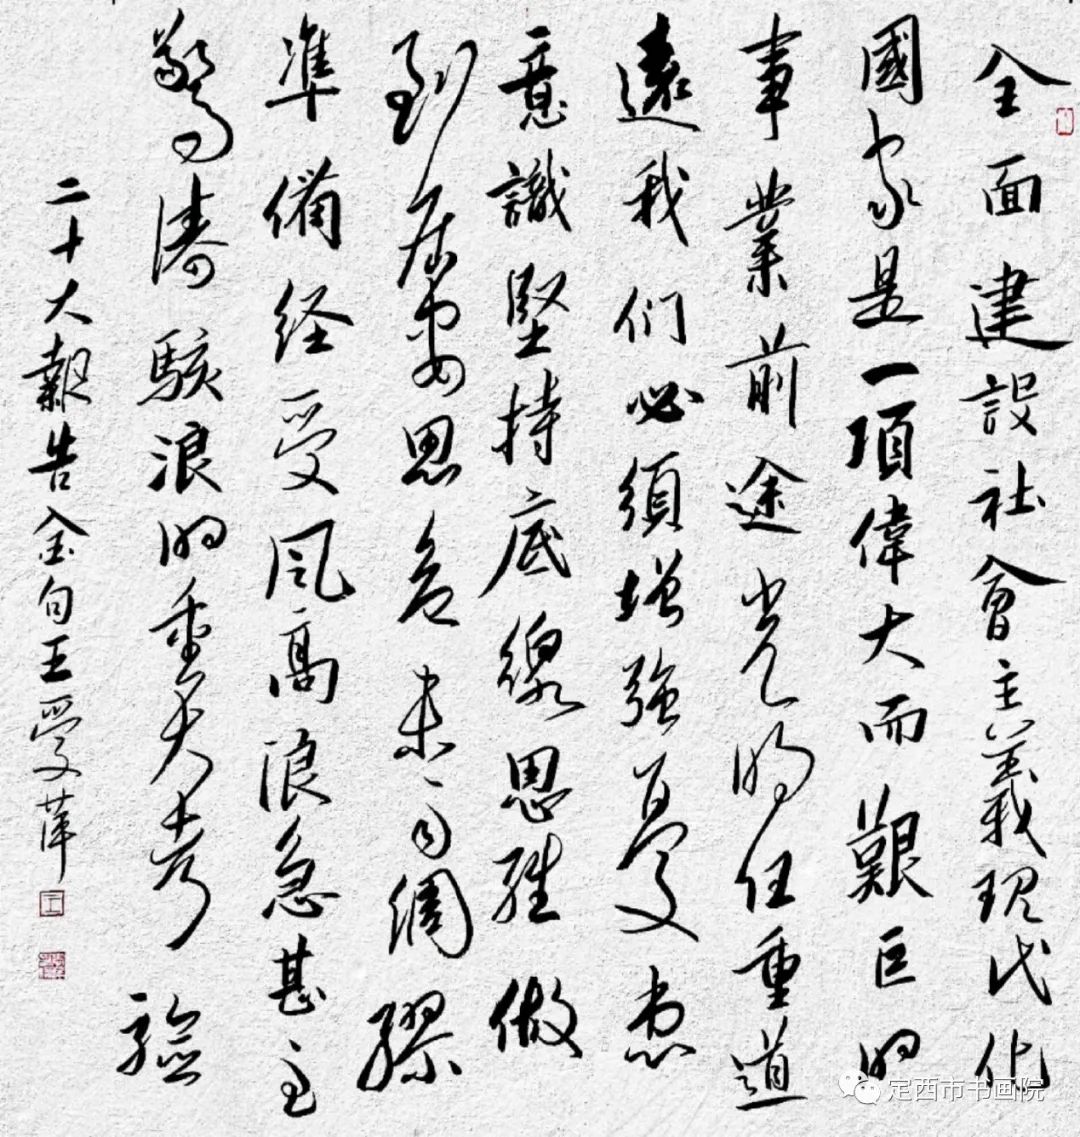 全面建設社會主義现代化
國家是一項偉大而艱巨的
事業前途光明任重道
遠我们必須增強憂患
意識堅持底線思維做
到居安思危未雨綢繆
準備经受风高浪急甚至
驚濤駭浪的重大考驗
二十大報告金句王萍
定西市书画院